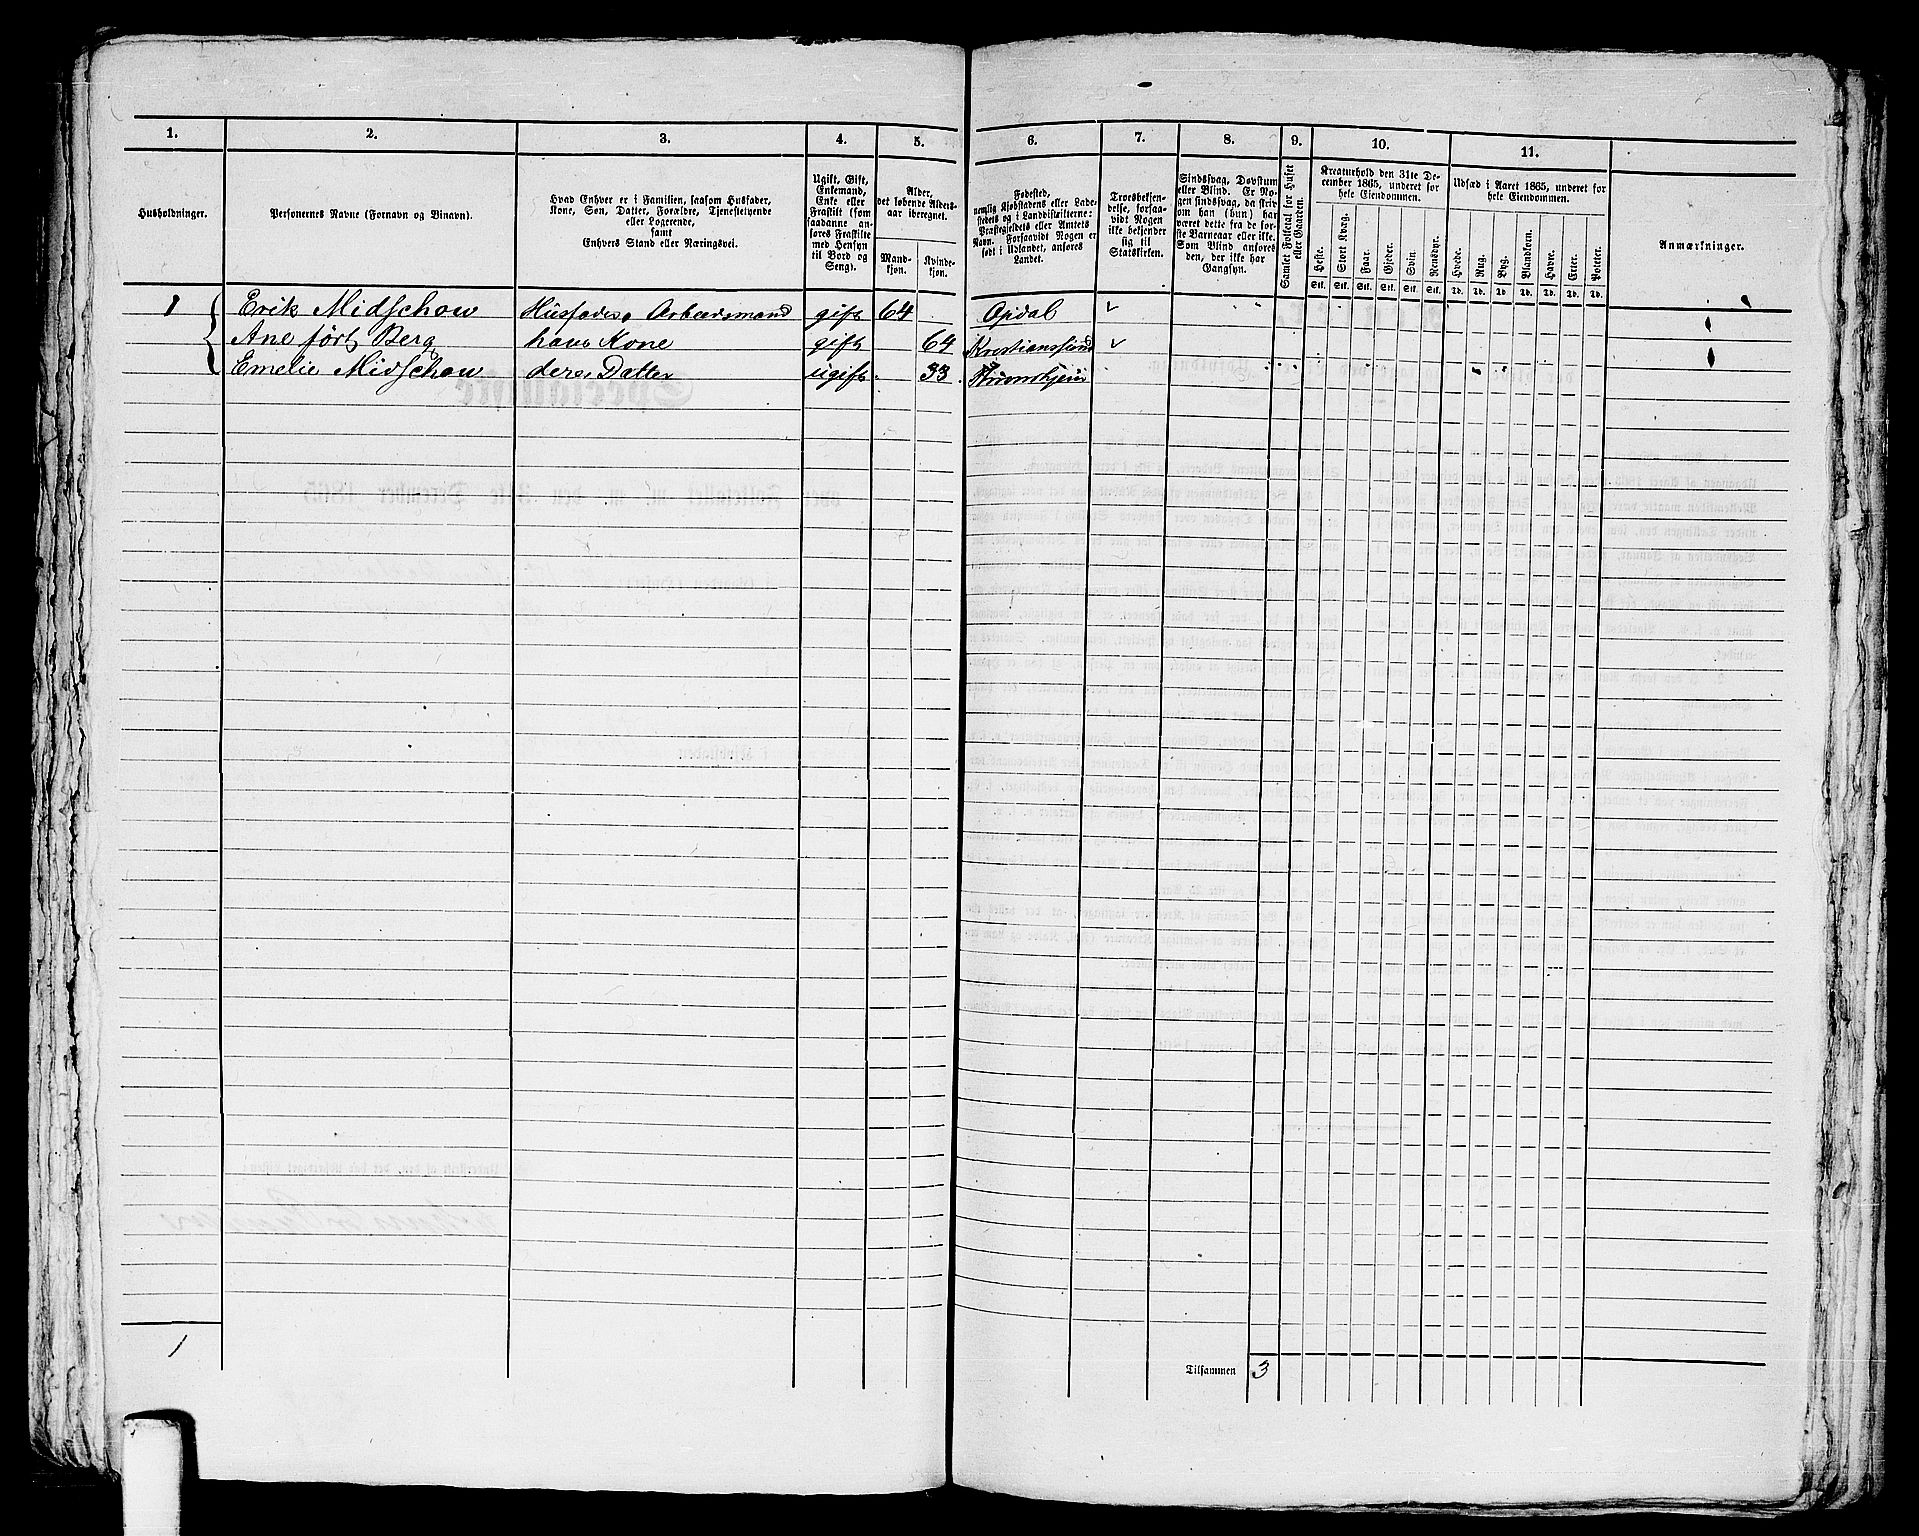 1. 2. 3. 4. 5. 6. 7. 8. 9. 10. 11.
Husholdninger.
Personernes Navne (Fornavn og Binavn).
Hvad Enhver er i Familien, saasom Husfader,
Kone, Søn, Datter, Forældre, Tjenestetyende
eller Logerende,
samt
Enhvers Stand eller Næringsvei.
Ugift, Gift,
Enkemand,
Enke eller
Fraskilt (som
saadanne an-
føres Fraskilte
med Hensyn
til Bord og
Seng).
Alder,
det løbende Alders-
aar iberegnet.
Mand-
kjøn.
Kvinde-
kjøn.
Fødested,
nemlig Kjøbstadens eller Lade-
stedets og i Landdistrikterne:
Præstegjeldets eller Amtets
Navn. Forsaavidt Nogen er
født i Udlandet, anføres
Landet.
Troesbekjen-
delse, forsaa-
vidt Nogen
ikke bekjender
sig til
Statskirken.
Sindssvag, Døvstum
eller Blind. Er No-
gen sindssvag, da skriv
om han (hun) har
været dette fra de før-
ste Barneaar eller ikke.
Som Blind anføres
den, der ikke har
Gangsyn.
Samlet Folketal for Huset
eller Gaarden.
Kreaturhold den 31te De-
cember 1865, underet for
hele Eiendommen.
Heste. Stort Kvæg. Faar. Gjeder. Svin. Rensdyr.
Stk. Stk. Stk. Stk. Stk. Stk.
Udsæd i Aaret 1865, underet for
hele Eiendommen.
Hvede. Rug. Byg. Blandkorn. Havre. Erter. Poteter.
Td. Td. Td. Td. Td. Td. Td.
Anmærkninger.
1 Erik Midschow Husfader, Arbeidsmand gift 64 Opdal
Ane født Berg hans Kone gift 64 Kristianssund
Emelie Midschow deres Datter ugift 33 Thronhjem
1
Tilsammen 3